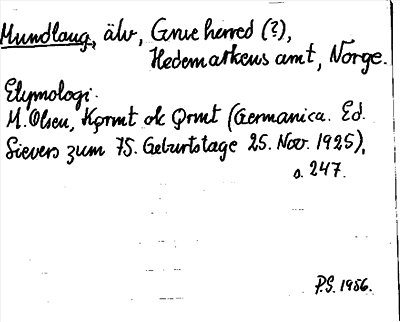 Mundlaug, älv, Grue herred (?),
Hedemarkens amt, Norge.
Etymologi.
M. Olsen, Kǫrmt ok Ǫrmt (Germanica. Ed.
Sievers zum 75. Geburtstage 25. Nov. 1925),
s. 247.
P.S. 1956.